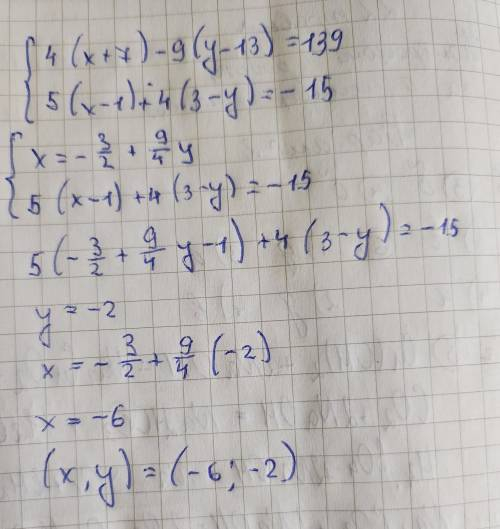 4(x+7)-9(y-13)=139
5(x-1)+4(3-y)=-15
x=-3/2+9/4y
5(x-1)+4(3-y)=-15
5(-3/2+9/4y-1)+4(3-y)=-15
y=-2
x=-3/2+9/4(-2)
x=-6
(x,y)=(-6;-2)